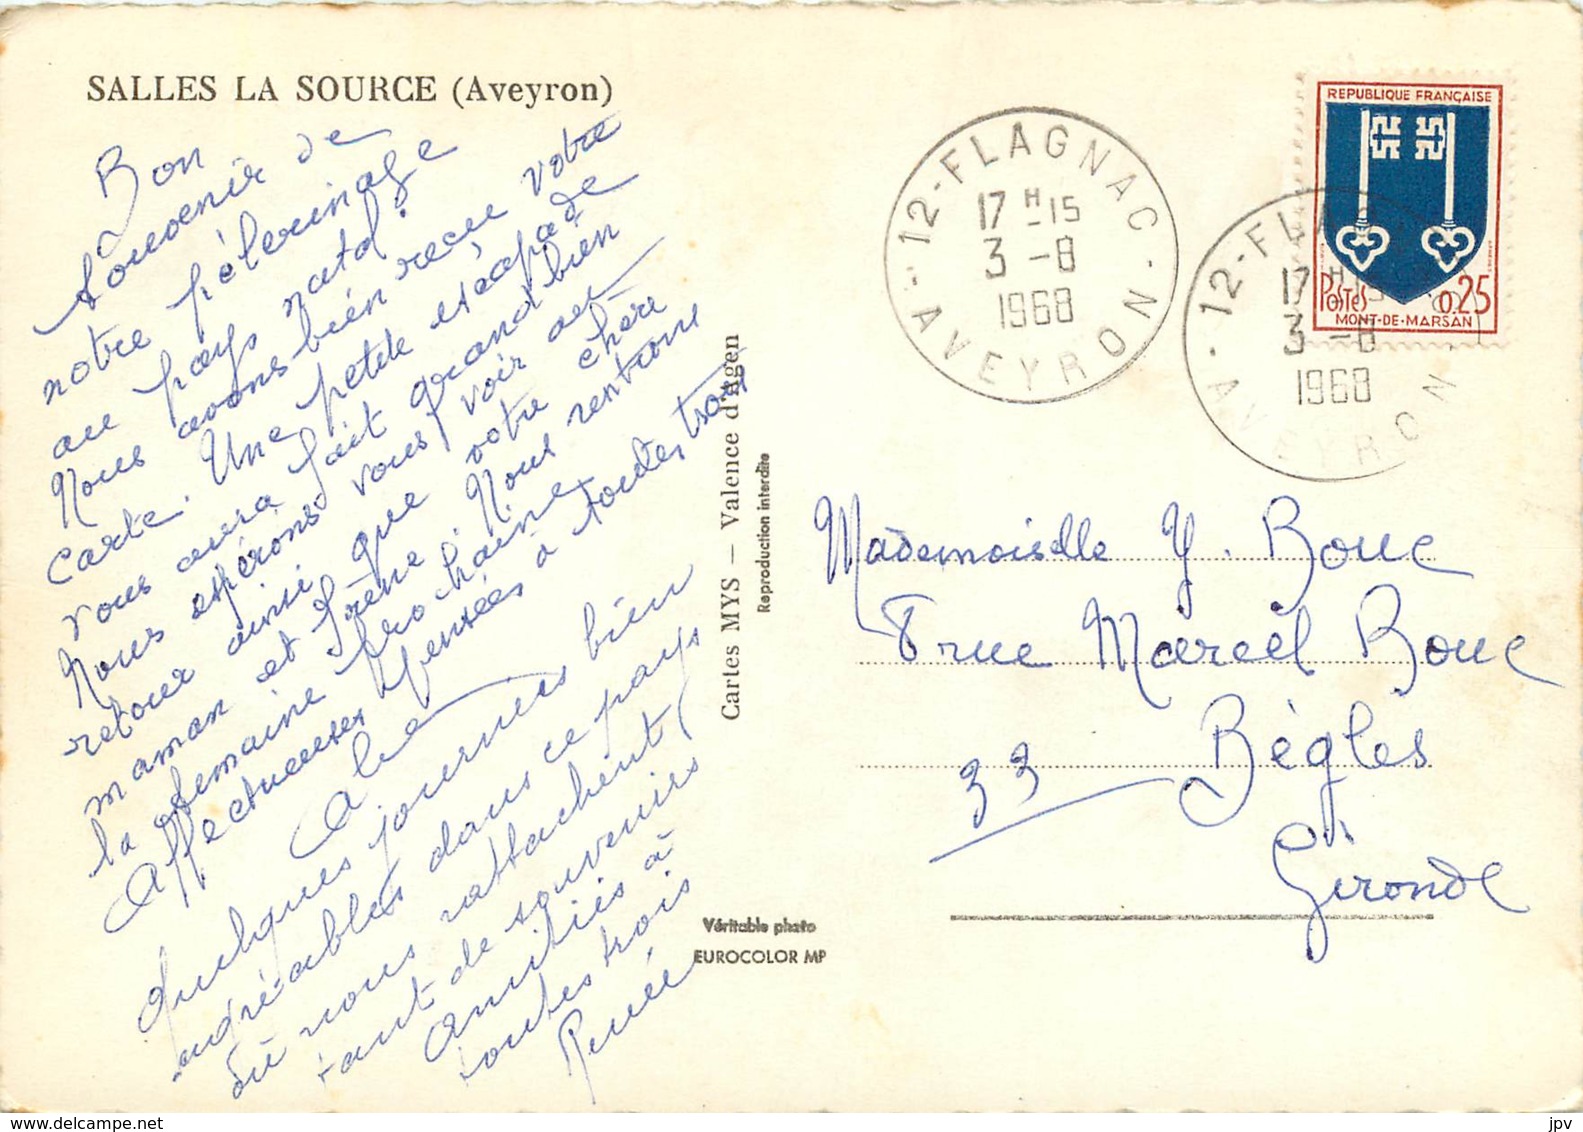 SALLES LA SOURCE (Aveyron)
Bon
souvenir de
notre pélerinage
au pays natal.
Nous avons bien recu votre
carte. Une petite escapade
vous aura fait grand bien
Nous espérons vous voir au
retour ainsi que votre chère
maman et Irène. Nous rentrons
la semaine prochaine
Affectueuses pensées à toutes trois
Quelques journees bien
agréables dans ce pays
où nous rattachent
tant de souvenirs
Amitiés à
toutes trois
Renée
Cartes MYS — Valence d'Agen
Reproduction interdite
Véritable photo
EUROCOLOR MP
12-FLAGNAC
17 H -15
3 -8
1968
AVEYRON
12-FLAGNAC
17 H -15
3 -8
1968
AVEYRON
REPUBLIQUE FRANÇAISE
POSTES
0,25
MONT-DE-MARSAN
Mademoiselle Y. Bouc
8 rue Marcel Bouc
33 Bègles
Gironde
jpv